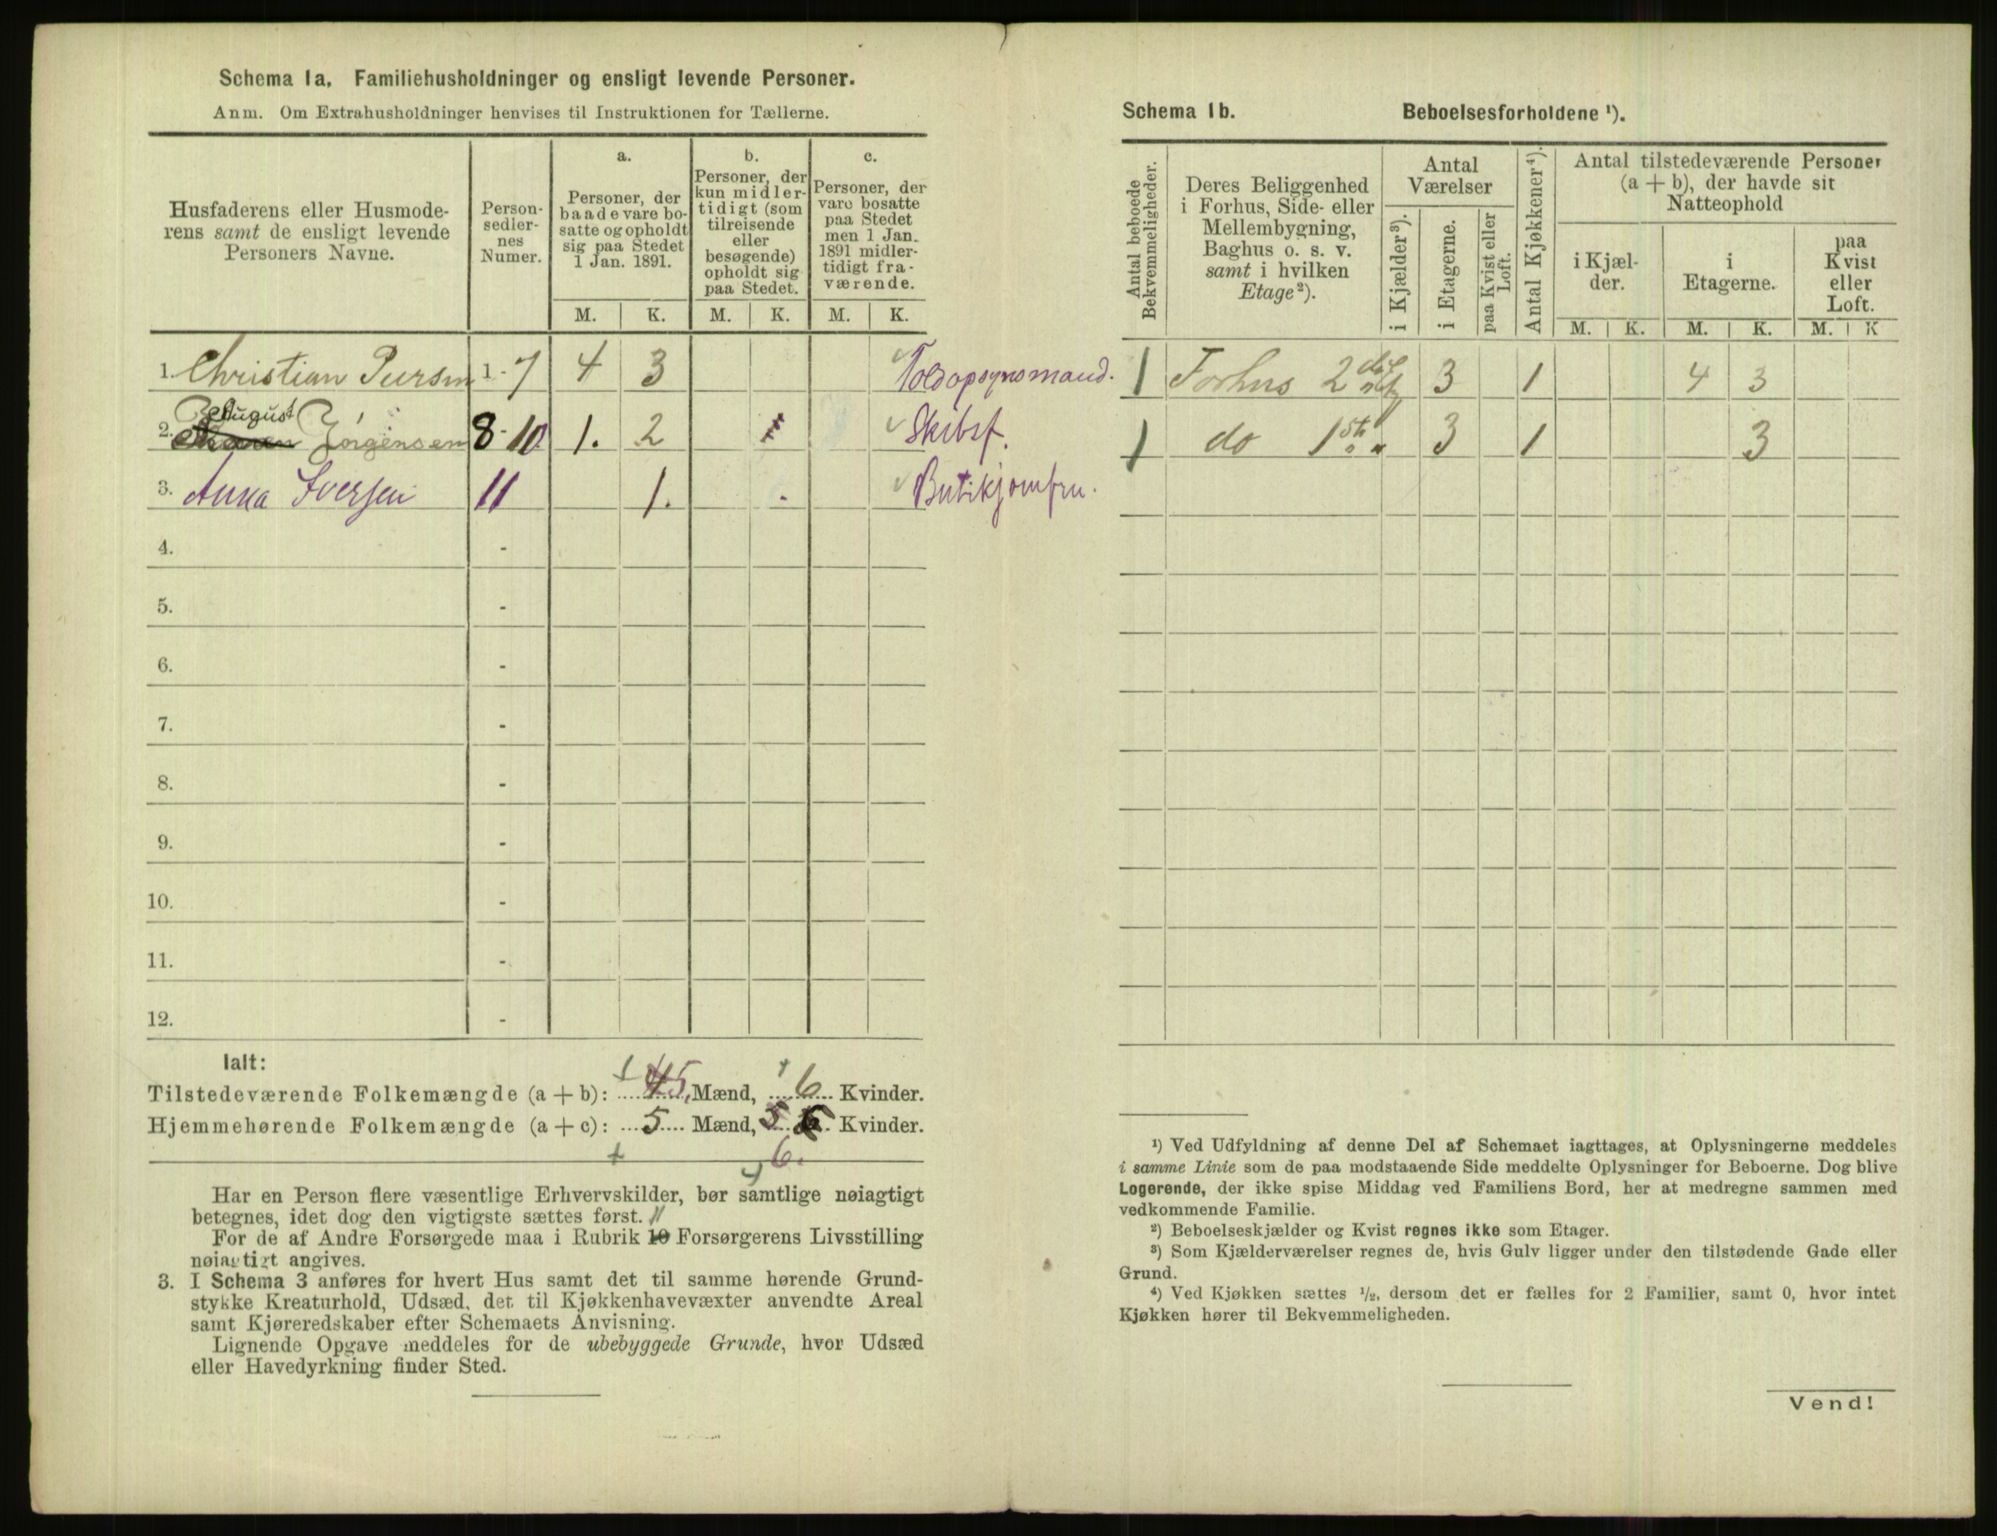 Schema 1a. Familiehusholdninger og ensligt levende Personer.
Anm. Om Extrahusholdninger henvises til Instruktionen for Tællerne.
Husfaderens eller Husmode-
rens samt de ensligt levende
Personers Navne.
Person-
sedler-
nes
Numer.
a.
Personer, der
baade vare bo-
satte og opholdt
sig paa Stedet
1 Jan. 1891.
b.
Personer, der
kun midler-
tidigt (som
tilreisende
eller
besøgende)
opholdt sig
paa Stedet.
c.
Personer, der
vare bosatte
paa Stedet
men 1 Jan.
1891 midler-
tidigt fra-
værende.
M. K. M. K. M. K.
1. Christian 1 - 7 4 3 Toldopsynsmand.
2. August Jörgensen 8 - 10 1. 2 Skibsf.
3. Anna Iversen 11 1. Butikjomfru.
4. -
5. -
6. -
7. -
8. -
9. -
10. -
11. -
12. -
Ialt:
Tilstedeværende Folkemængde (a + b): 5. Mænd, 6 Kvinder.
Hjemmehørende Folkemængde (a + c): 5 Mænd, 5 6 Kvinder.
6.
Har en Person flere væsentlige Erhvervskilder, bør samtlige nøiagtigt
betegnes, idet dog den vigtigste sættes først.
For de af Andre Forsørgede maa i Rubrik 10 11 Forsørgerens Livsstilling
nøiagtigt angives.
3. I Schema 3 anføres for hvert Hus samt det til samme hørende Grund-
stykke Kreaturhold, Udsæd, det til Kjøkkenhavevæxter anvendte Areal
samt Kjøreredskaber efter Schemaets Anvisning.
Lignende Opgave meddeles for de ubebyggede Grunde, hvor Udsæd
eller Havedyrkning finder Sted.
Schema 1b. Beboelsesforholdene ¹).
Antal beboede
Bekvemmeligheder.
Deres Beliggenhed
i Forhus, Side- eller
Mellembygning,
Baghus o. s. v.
samt i hvilken
Etage²).
Antal
Værelser
i Kjælder³).
i Etagerne.
paa Kvist eller
Loft.
Antal Kjøkkener⁴).
Antal tilstedeværende Personer
(a + b), der havde sit
Natteophold
i Kjæl-
der.
i
Etagerne.
paa
Kvist
eller
Loft.
M. K. M. K. M. K
1 Forhus 2 3 1 4 3
1 do 1ste " 3 1 3
¹) Ved Udfyldning af denne Del af Schemaet iagttages, at Oplysningerne meddeles
i samme Linie som de paa modstaaende Side meddelte Oplysninger for Beboerne. Dog blive
Logerende, der ikke spise Middag ved Familiens Bord, her at medregne sammen med
vedkommende Familie.
²) Beboelseskjælder og Kvist regnes ikke som Etager.
³) Som Kjælderværelser regnes de, hvis Gulv ligger under den tilstødende Gade eller
Grund.
⁴) Ved Kjøkken sættes ½, dersom det er fælles for 2 Familier, samt 0, hvor intet
Kjøkken hører til Bekvemmeligheden.
Vend!